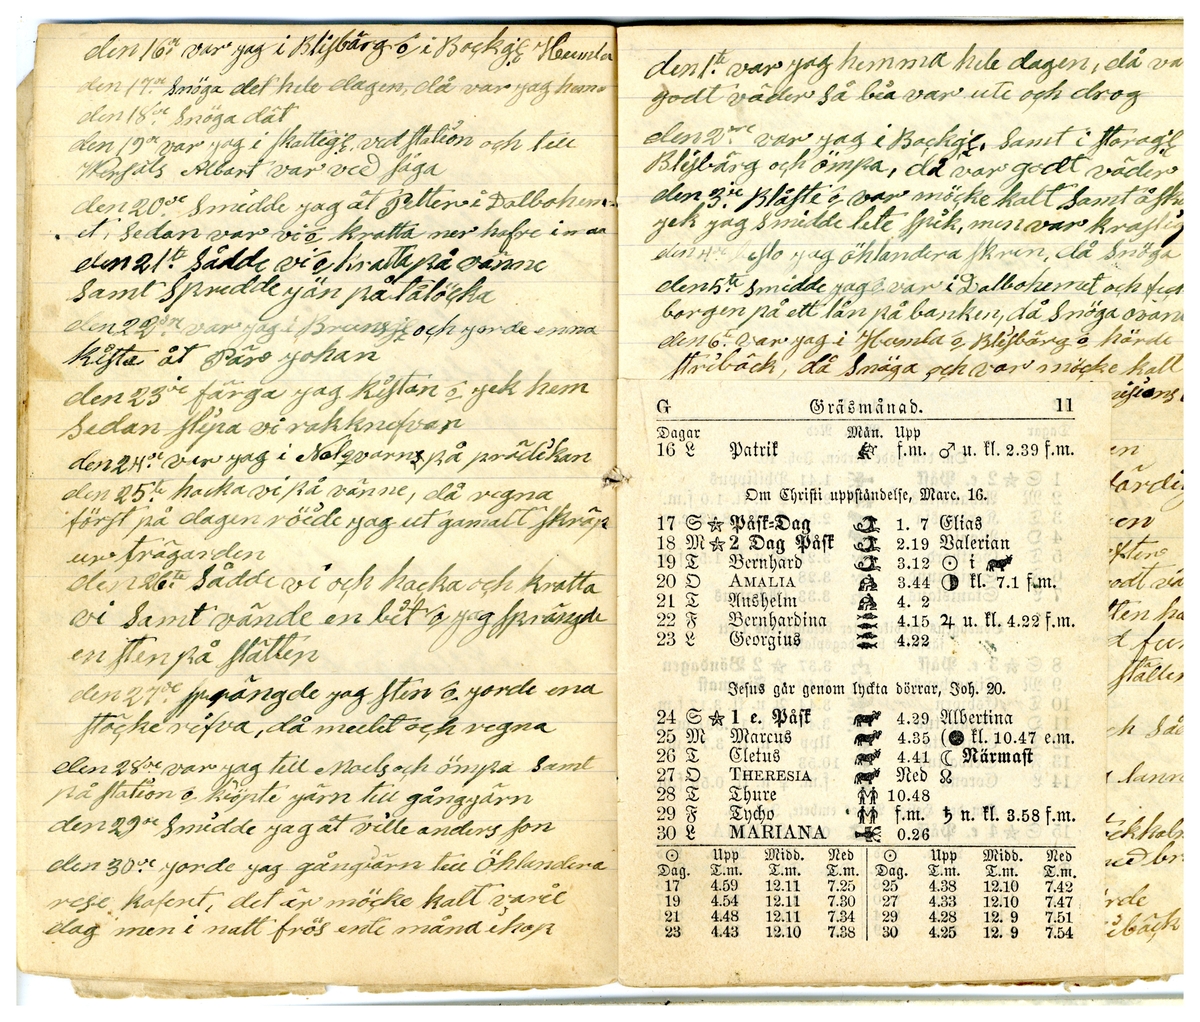 den 16de var jag i Blisbärg o i Bockgjl Humla
den 17de Snöga det hele dagen, då var jag hema
den 18de Snöga dåt
den 19de var jag i skattigl. ved station och till
Albart var ved såga
den 20de Smidde jag åt Petter i Dalbohem
et, Sedan var vi o kratta ner hafre in
den 21te Sådde vi o kratta på vänne
Samt Spredde jän på
den 22dre var jag i och jorde enna
kista åt Pärs johan
den 23de färga jag kistan o gek hem
Sedan slipa vi rakknefvar
den 24de var jag i Nolqvarns på prädikan
den 25te hacka vi på vänne, då regna
först på dagen röide jag ut gamalt skräp
ur trägarden
den 26te Sådde vi och hacka och kratta
vi Samt vände en bét o jag Sprängde
en sten på slätten
den 27de Sprängde jag sten o jorde ena
stöcke rifva, då och regna
den 28de var jag till Noels och ömpa Samt
på station o köpte järn till gångjärn
den 29de Smidde jag åt ville anders son
den 30de jorde jag gångjärn till Öhlandera
rese kofert, det är möcke kalt varé
dag men i natt frös ente månd ihop
den 1te var jag hemma hele dagen, då va
godt väder Så bia var ute och drog
den 2dre var jag i Bockgjl, Samt i storagjl
Blisbärg och ömpa, då var godt väder
den 3de Blåste o var möcke kalt Samt åske
gek jag Smidde lite Spik, men var kraslig
den 4de jag öhlandera skrin, då Snöga
den 5te Smidde jag o var i Dalbohemet och feck
borgen på ett lån på banken, då Snöga
den 6te var jag i Humla o Blisbärg o hörde
stribäck, då Snöga och var möcke kalt
G Gräsmånad. 11
Dagar Mån. Upp
16 L Patrik f.m. ♂ u. kl. 2.39 f.m.
Om Christi uppståndelse, Marc. 16.
17 S ☆ Påsk-Dag 1. 7 Elias
18 M ☆ 2 Dag Påsk 2.19 Valerian
19 T Bernhard 3.12 ☉ i
20 O AMALIA 3.44 kl. 7.1 f.m.
21 T Anshelm 4. 2
22 F Bernhardina 4.15 ♃ u. kl. 4.22 f.m.
23 L Georgius 4.22
Jesus går genom lyckta dörrar, Joh. 20.
24 S ☆ 1 e. Påsk 4.29 Albertina
25 M Marcus 4.35 kl. 10.47 e.m.
26 T Cletus 4.41 ☾ Närmast
27 O THERESIA Ned ☊
28 T Thure 10.48
29 F Tycho f.m. ♄ n. kl. 3.58 f.m.
30 L MARIANA 0.26
☉ Upp Midd. Ned ☉ Upp Midd. Ned
Dag. T.m. T.m. T.m. Dag. T.m. T.m. T.m.
17 4.59 12.11 7.25 25 4.38 12.10 7.42
19 4.54 12.11 7.30 27 4.33 12.10 7.47
21 4.48 12.11 7.34 29 4.28 12. 9 7.51
23 4.43 12.10 7.38 30 4.25 12. 9 7.54